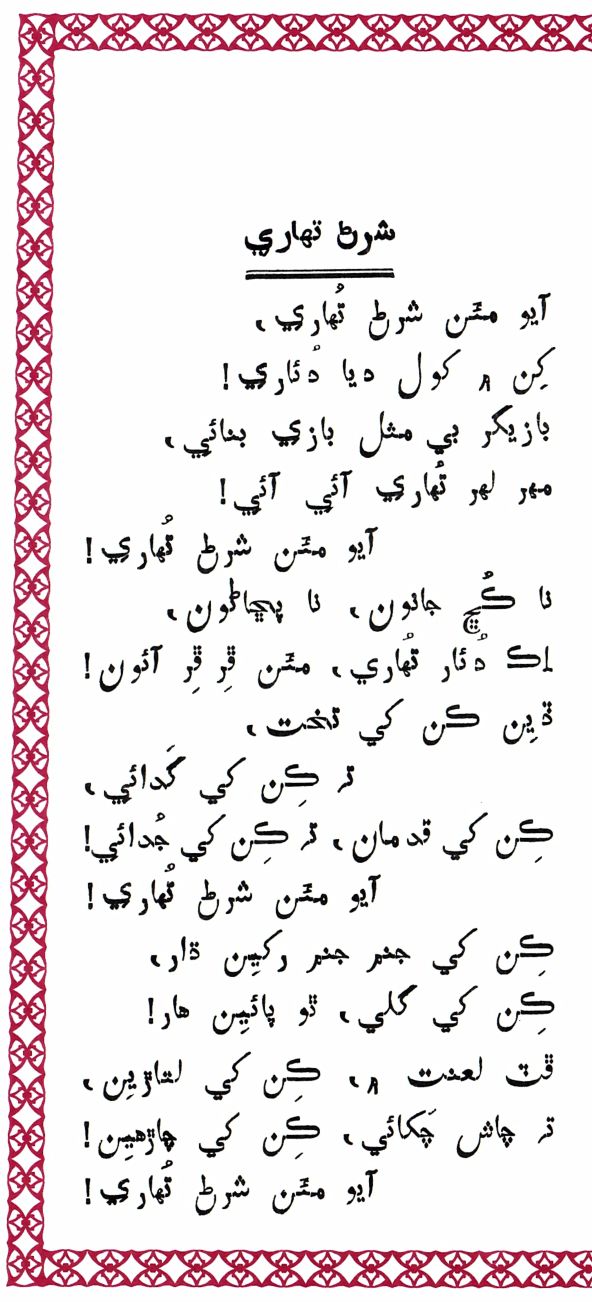 شرڻ تهاري
آيو مٿن شرڻ تُهاري،
ڪِن ۾ کول ديا دُئاري!
بازيگر بي مثل بازي بنائي،
مهر لهر تُهاري آئي آئي!
آيو مٿن شرڻ تُهاري!
نا ڪُڇ جانون، نا پڇاڻون،
اڪ دُئار تُهاري، مٿن ڦِر ڦِر آئون!
ڏين ڪن کي تخت،
تہ ڪِن کي گَدائي،
ڪِن کي قدمان، تہ ڪِن کي جُدائي!
آيو مٿن شرڻ تُهاري!
ڪِن کي جنم جنم رکين ڌار،
ڪِن کي گلي، ٿو پائين هار!
ڦٽ لعنت ۾، ڪِن کي لتاڙين،
تہ چاش چَکائي، ڪِن کي چاڙهين!
آيو مٿن شرڻ تُهاري!